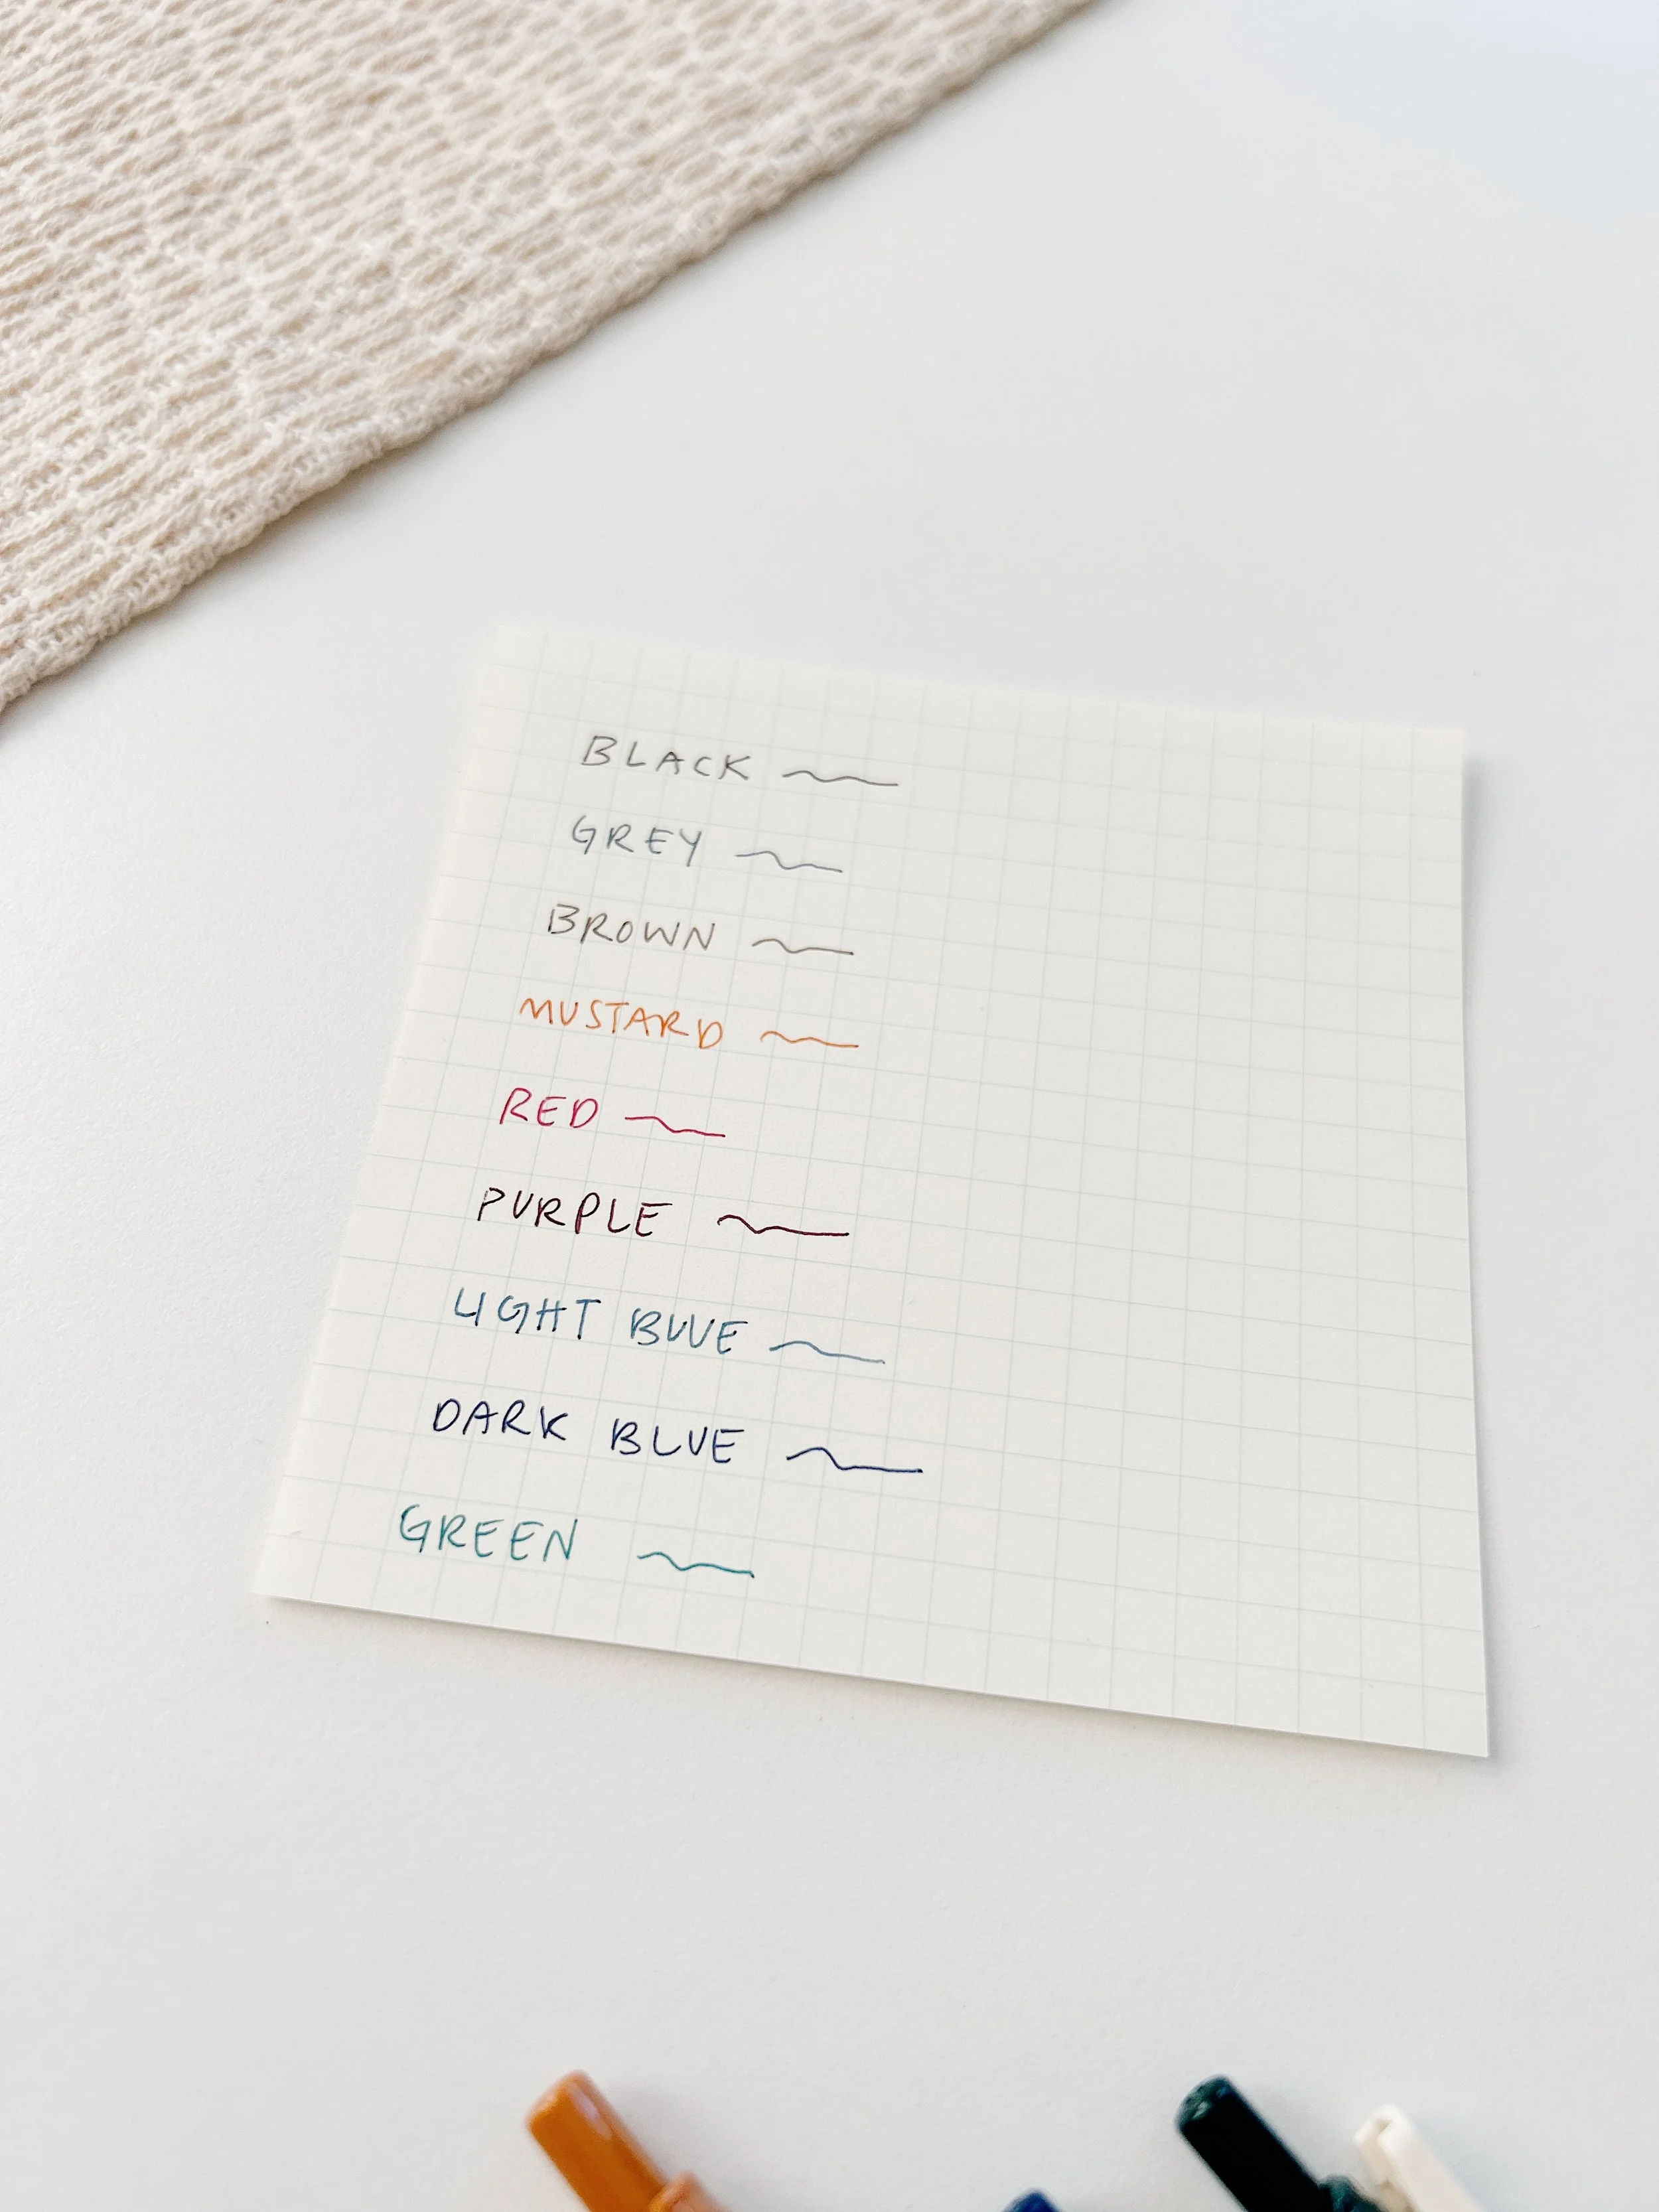 BLACK
GREY
BROWN
MUSTARD
RED
PURPLE
LIGHT BLUE
DARK BLUE
GREEN